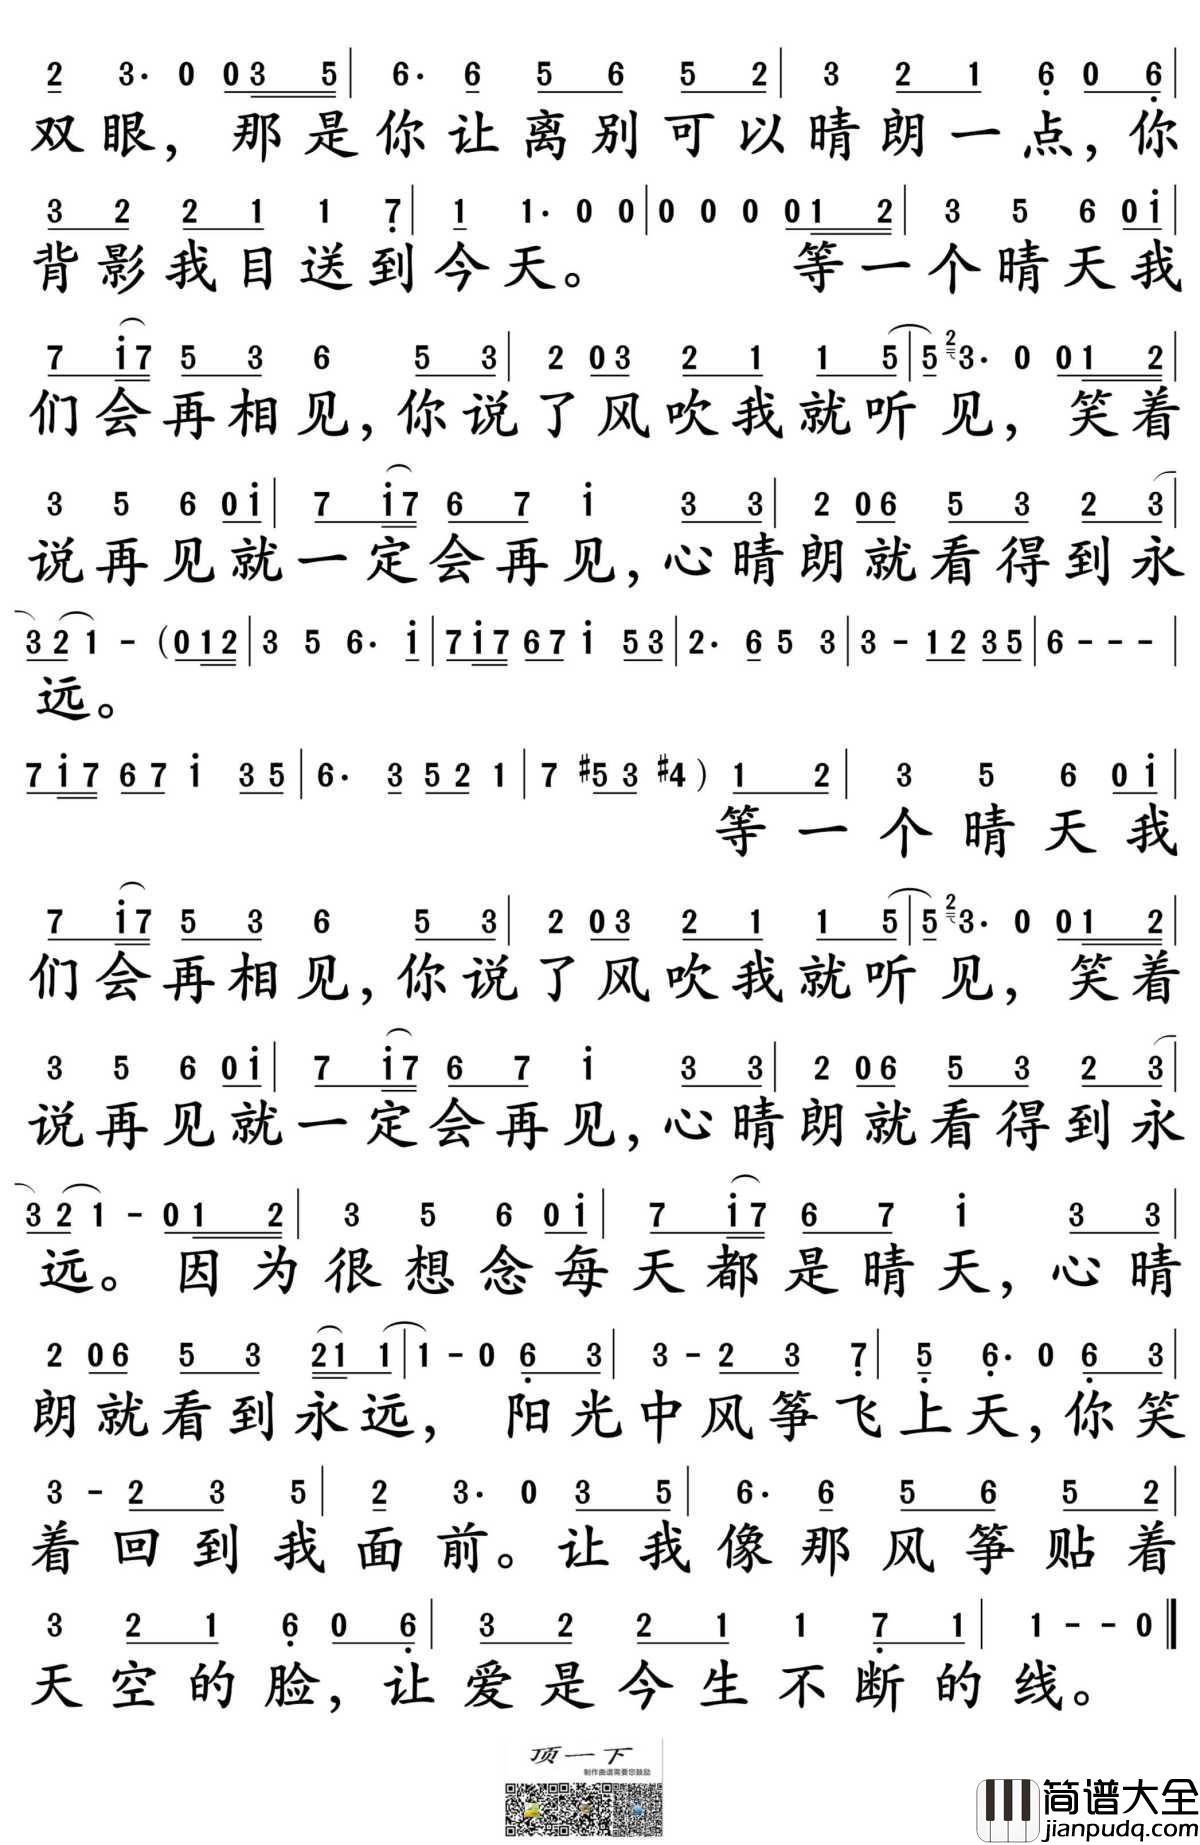 2 3· 0 0 3 5 | 6· 6 5 6 5 2 | 3 2 1 6 0 6 |
双眼，那是你让离别可以晴朗一点，你
3 2 2 1 1 7 | 1 1· 0 0 | 0 0 0 0 1 2 | 3 5 6 0 i |
背影我目送到今天。 等一个晴天我
7 i 7 5 3 6 5 3 | 2 0 3 2 1 1 5 | 5 2 3· 0 0 1 2 |
们会再相见，你说了风吹我就听见，笑着
3 5 6 0 i | 7 i 7 6 7 i 3 3 | 2 0 6 5 3 2 3 |
说再见就一定会再见，心晴朗就看得到永
3 2 1 - (0 1 2 | 3 5 6· i | 7 i 7 6 7 i 5 3 | 2· 6 5 3 | 3 - 1 2 3 5 | 6 - - - |
远。
7 i 7 6 7 i 3 5 | 6· 3 5 2 1 | 7 #5 3 #4 ) 1 2 | 3 5 6 0 i |
等一个晴天我
7 i 7 5 3 6 5 3 | 2 0 3 2 1 1 5 | 5 2 3· 0 0 1 2 |
们会再相见，你说了风吹我就听见，笑着
3 5 6 0 i | 7 i 7 6 7 i 3 3 | 2 0 6 5 3 2 3 |
说再见就一定会再见，心晴朗就看得到永
3 2 1 - 0 1 2 | 3 5 6 0 i | 7 i 7 6 7 i 3 3 |
远。因为很想念每天都是晴天，心晴
2 0 6 5 3 2 1 1 | 1 - 0 6 3 | 3 - 2 3 7 | 5 6· 0 6 3 |
朗就看到永远，阳光中风筝飞上天，你笑
3 - 2 3 5 | 2 3· 0 3 5 | 6· 6 5 6 5 2 |
着回到我面前。让我像那风筝贴着
3 2 1 6 0 6 | 3 2 2 1 1 7 1 | 1 - - 0 ‖
天空的脸，让爱是今生不断的线。
顶一下
制作曲谱需要您鼓励
简谱大全
jianpudq.com